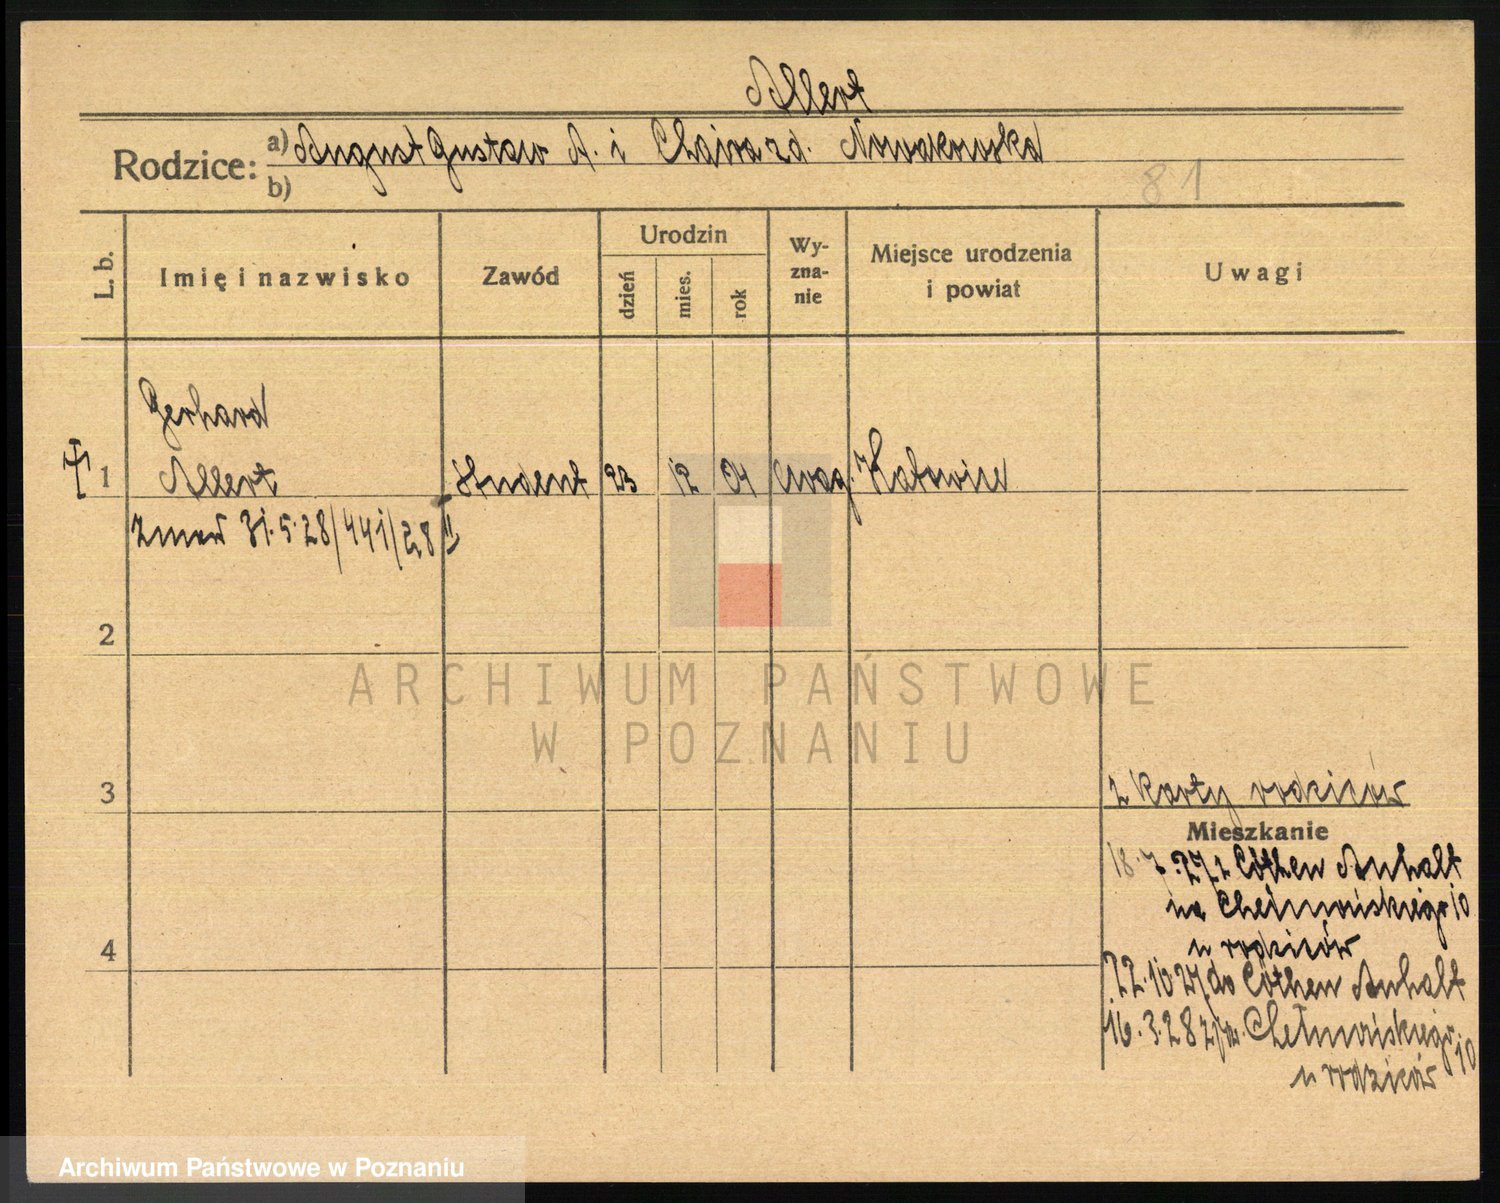 Allert
Rodzice: a) August Gustaw A. i Clara zd. Nowakowska
b)
81
L. b.
Imię i nazwisko
Zawód
Urodzin
dzień
mies.
rok
Wy-
zna-
nie
Miejsce urodzenia
i powiat
Uwagi
Gerhard
1 Allert student 23 12 04 ewag. Katowice
zmarł 31.5.28/441/28 II
2
3
4
z karty rodziców
Mieszkanie
18.7.27 z Cöthen Anhalt
na Chełmońskiego 10
u rodziców
22.10.27 do Cöthen Anhalt
16.3.28 Chełmońskiego 10
u rodziców
ARCHIWUM PAŃSTWOWE
W POZNANIU
Archiwum Państwowe w Poznaniu